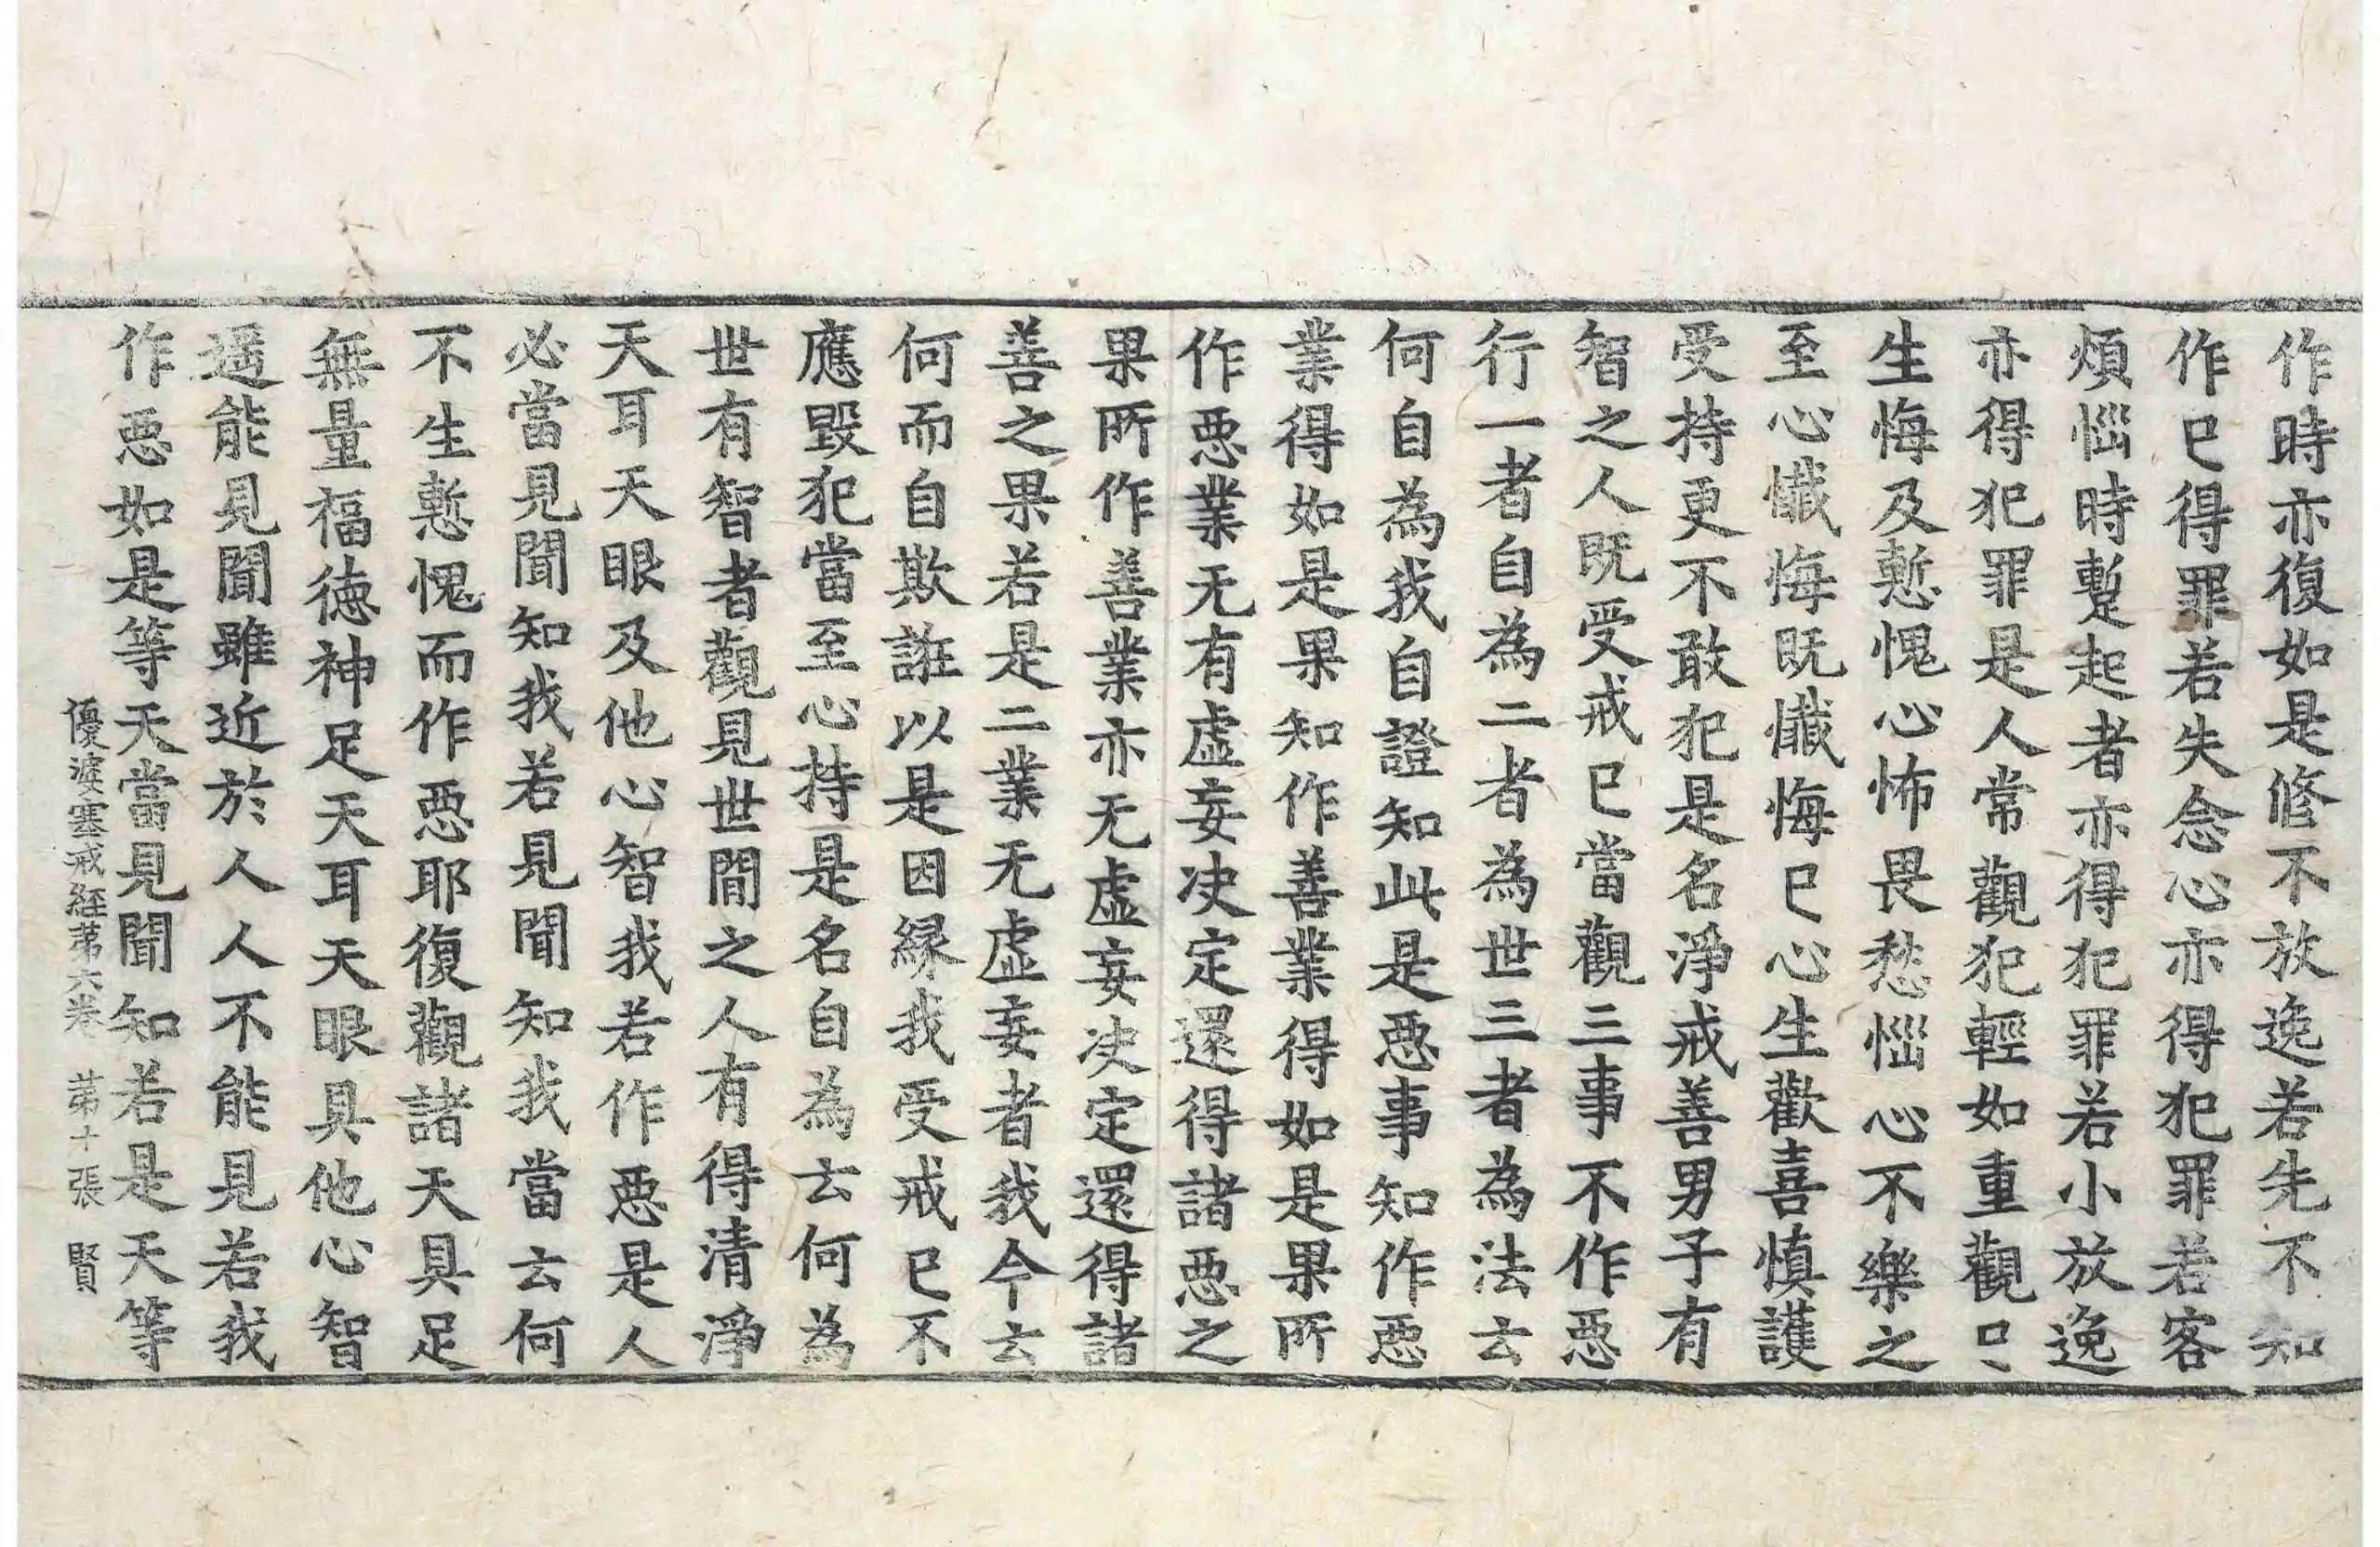 作時亦復如是修不放逸若先不知
作已得罪若失念心亦得犯罪若客
煩惱時蹔起者亦得犯罪若小放逸
亦得犯罪是人常觀犯輕如重觀已
生悔及慙愧心怖畏愁惱心不樂之
至心懺悔既懺悔已心生歡喜慎護
受持更不敢犯是名淨戒善男子有
智之人既受戒已當觀三事不作惡
行一者自為二者為世三者為法云
何自為我自證知此是惡事知作惡
業得如是果知作善業得如是果所
作惡業无有虛妄决定還得諸惡之
果所作善業亦无虛妄决定還得諸
善之果若是二業无虛妄者我今云
何而自欺誑以是因緣我受戒已不
應毀犯當至心持是名自為云何為
世有智者觀見世間之人有得清淨
天耳天眼及他心智我若作惡是人
必當見聞知我若見聞知我當云何
不生慙愧而作惡耶復觀諸天具足
無量福德神足天耳天眼具他心智
遥能見聞雖近於人人不能見若我
作惡如是等天當見聞知若是天等
優婆塞戒経苐六卷 苐十張 賢